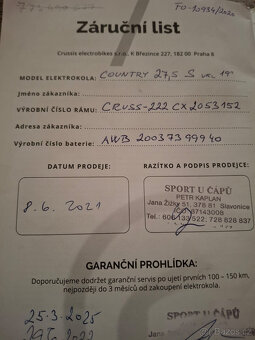 FO-10934/2020
Záruční list
Crussis electrobikes s.r.o., K Březince 227, 182 00 Praha 8
MODEL ELEKTROKOLA: COUNTRY 27,5 S vel 19"
Jméno zákazníka:
VÝROBNÍ ČÍSLO RÁMU: CRUSS-222 CX2053152
Adresa zákazníka:
Výrobní číslo baterie: AWB 200373999 40
DATUM PRODEJE:
RAZÍTKO A PODPIS PRODEJCE:
8.6.2021
SPORT U ČÁPŮ
PETR KAPLAN
Jana Žižky 51, 378 81 Slavonice
IČO 87143008
Tel.: 606 133 522; 728 828 837
GARANČNÍ PROHLÍDKA:
Doporučujeme dodržet garanční servis po ujetí prvních 100 - 150 km,
nejpozději do 3 měsíců od zakoupení elektrokola.
25-3-2025
SPORT U ČÁPŮ